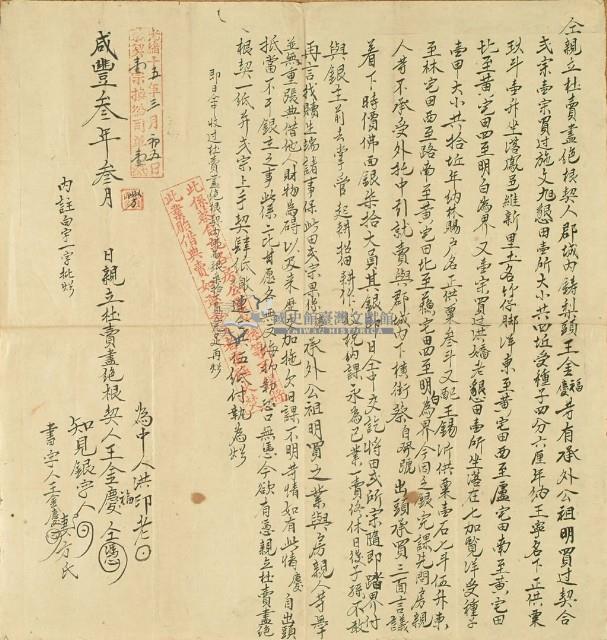 仝親立杜賣盡絕根契人郡城內鑄犁頭王金福慶等有承外公祖明買過契合
弍宗壹宗買過施文旭懇田壹所大小共四坵受種子四分六厘年納王寧名下正供粟
玖斗壹升坐落鳳邑維新里土名竹仔脚洋東至黃宅田西至盧宅田南至黃宅田
北至黃宅田四至明白為界又壹宗買過洪嬌老懇田壹所坐落在七加覽洋受種子
壹甲大小共拾坵年納林賜户名正供粟叁斗又配王錫沂供粟壹石七斗伍升東
至林宅田西至路南至黃宅田北至蘇宅田四至明白為界今因乏銀完課先問房親
人等不承受外托中引就賣與郡城內下橫街蔡自琴號出頭承買三面言議
着下時價佛面銀柒拾大員其銀即日仝中交訖將田弍所宗隨即踏界付
與銀主前去掌管起耕招佃耕作收稅納課永為己業一賣終休日後子孫不敢
再言找贖生端諸事保此田弍宗果係承外公祖明買之業與房親人等無
並無重張典借他人財物為碍以及來歷交加拖欠日課不明等情如有此情慶自出頭
抵當不干銀主之事此係二比甘愿各無反悔抑勒恐口無憑今欲有憑親立杜賣盡絕
根契一紙并弍宗上手契肆紙聢連共伍紙付執為炤
即日仝收過杜賣盡絕根契內佛面銀柒拾大員完足再炤
光緒十五年三月初五日
咸豐叁年叁月　日親立杜賣盡絕根契人王金慶福仝
內註白字一字批炤
為中人洪印老
知見銀字人黃方氏
書字人王金慶
國史館臺灣文獻館
TAIWAN HISTORICA